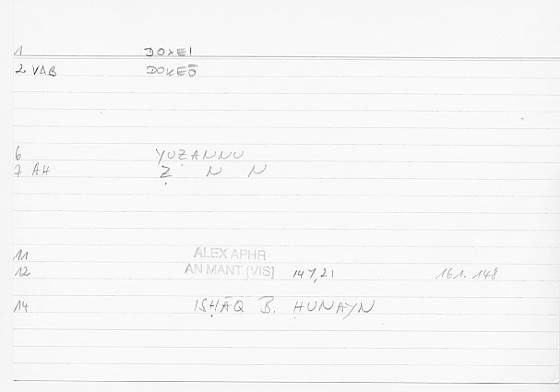 1 DOKEI
2 VAB DOKEŌ
6 YUẒANNU
7 AH Ẓ N N
11 ALEX APHR
12 AN MANT [VIS] 147,21 161. 148
14 ISḤĀQ B. ḤUNAYN